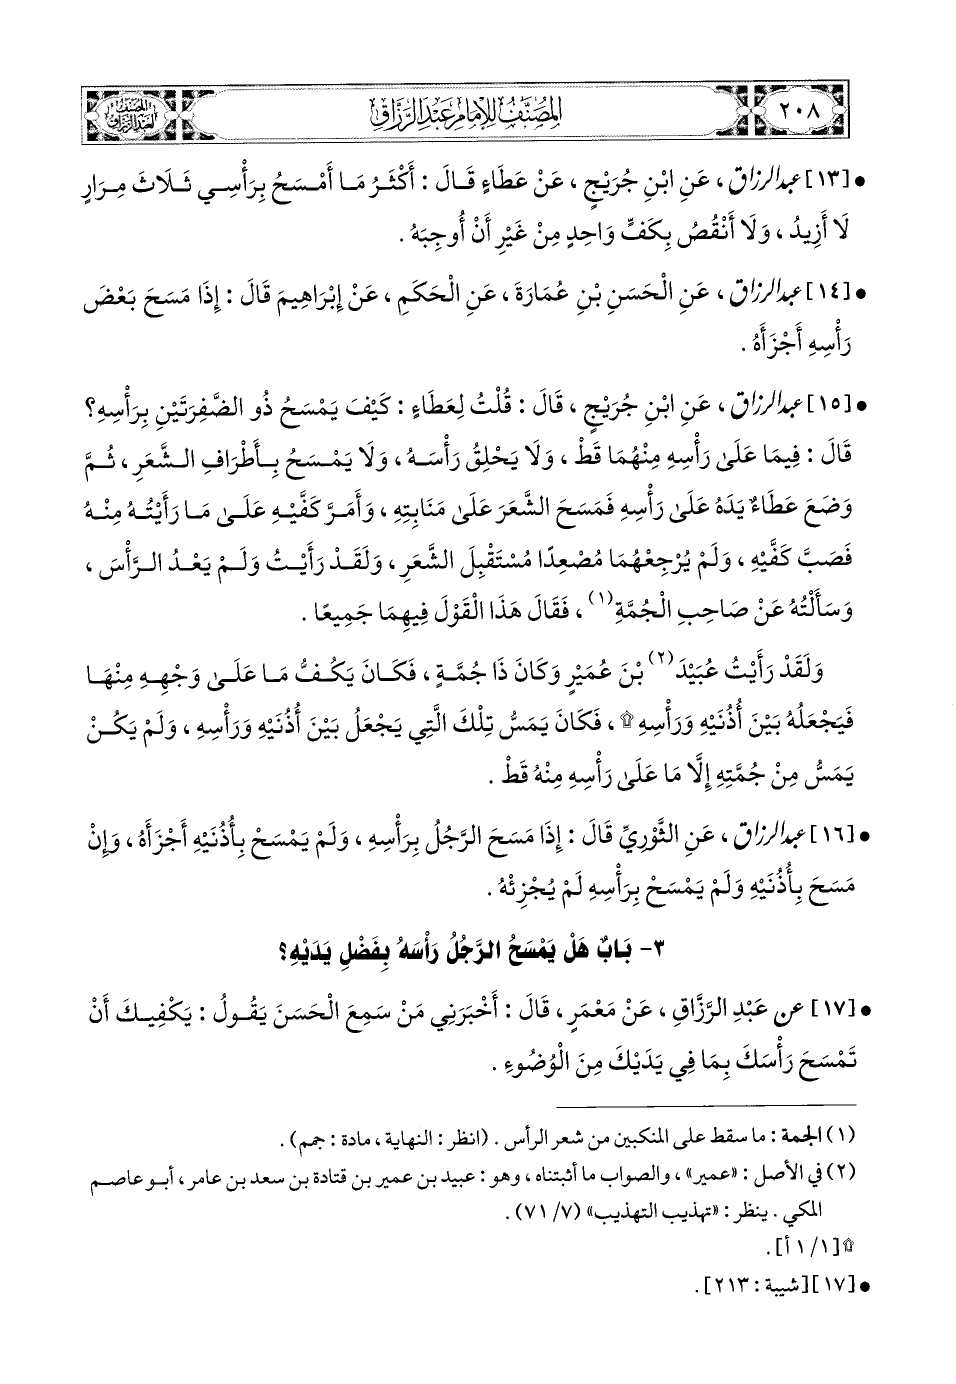 ٢٠٨
المصنف للإمام عبد الرزاق
المصنف
لعبد الرزاق
• [١٣] عبد الرزاق ، عَنِ ابْنِ جُرَيْجٍ ، عَنْ عَطَاءٍ قَالَ : أَكْثَرُ مَا أَمْسَحُ بِرَأْسِي ثَلَاثَ مِرَارٍ
لَا أَزِيدُ ، وَلَا أَنْقُصُ بِكَفٍّ وَاحِدٍ مِنْ غَيْرِ أَنْ أُوجِبَهُ .
• [١٤] عبد الرزاق ، عَنِ الْحَسَنِ بْنِ عُمَارَةَ ، عَنِ الْحَكَمِ ، عَنْ إِبْرَاهِيمَ قَالَ : إِذَا مَسَحَ بَعْضَ
رَأْسِهِ أَجْزَأَهُ .
• [١٥] عبد الرزاق ، عَنِ ابْنِ جُرَيْجٍ ، قَالَ : قُلْتُ لِعَطَاءٍ : كَيْفَ يَمْسَحُ ذُو الضَّفِرَتَيْنِ بِرَأْسِهِ؟
قَالَ : فِيمَا عَلَىٰ رَأْسِهِ مِنْهُمَا قَطْ ، وَلَا يَحْلِقُ رَأْسَهُ ، وَلَا يَمْسَحُ بِأَطْرَافِ الشَّعَرِ ، ثُمَّ
وَضَعَ عَطَاءٌ يَدَهُ عَلَىٰ رَأْسِهِ فَمَسَحَ الشَّعَرَ عَلَىٰ مَنَابِتِهِ ، وَأَمَرَّ كَفَّيْهِ عَلَىٰ مَا رَأَيْتُهُ مِنْهُ
فَصَبَّ كَفَّيْهِ ، وَلَمْ يُرْجِعْهُمَا مُصْعِدًا مُسْتَقْبِلَ الشَّعَرِ ، وَلَقَدْ رَأَيْتُ وَلَمْ يَعْدُ الرَّأْسَ ،
وَسَأَلْتُهُ عَنْ صَاحِبِ الْجُمَّةِ (١) ، فَقَالَ هَذَا الْقَوْلَ فِيهِمَا جَمِيعًا .
وَلَقَدْ رَأَيْتُ عُبَيْدَ (٢) بْنَ عُمَيْرٍ وَكَانَ ذَا جُمَّةٍ ، فَكَانَ يَكُفُّ مَا عَلَىٰ وَجْهِهِ مِنْهَا
فَيَجْعَلُهُ بَيْنَ أُذُنَيْهِ وَرَأْسِهِ ۩ ، فَكَانَ يَمَسُّ تِلْكَ الَّتِي يَجْعَلُ بَيْنَ أُذُنَيْهِ وَرَأْسِهِ ، وَلَمْ يَكُنْ
يَمَسُّ مِنْ جُمَّتِهِ إِلَّا مَا عَلَىٰ رَأْسِهِ مِنْهُ قَطْ .
• [١٦] عبد الرزاق ، عَنِ الثَّوْرِيِّ قَالَ : إِذَا مَسَحَ الرَّجُلُ بِرَأْسِهِ ، وَلَمْ يَمْسَحْ بِأُذُنَيْهِ أَجْزَأَهُ ، وَإِنْ
مَسَحَ بِأُذُنَيْهِ وَلَمْ يَمْسَحْ بِرَأْسِهِ لَمْ يُجْزِئْهُ .
٣- بَابٌ هَلْ يَمْسَحُ الرَّجُلُ رَأْسَهُ بِفَضْلِ يَدَيْهِ؟
• [١٧] عن عَبْدِ الرَّزَّاقِ ، عَنْ مَعْمَرٍ ، قَالَ : أَخْبَرَنِي مَنْ سَمِعَ الْحَسَنَ يَقُولُ : يَكْفِيكَ أَنْ
تَمْسَحَ رَأْسَكَ بِمَا فِي يَدَيْكَ مِنَ الْوُضُوءِ .
(١) الجمة : ما سقط على المنكبين من شعر الرأس . (انظر : النهاية ، مادة : جمم) .
(٢) في الأصل : «عمير» ، والصواب ما أثبتناه ، وهو : عبيد بن عمير بن قتادة بن سعد بن عامر ، أبو عاصم
المكي . ينظر : «تهذيب التهذيب» (٧/ ٧١) .
۩ [١/ ١ أ] .
• [١٧] [شيبة : ٢١٣] .